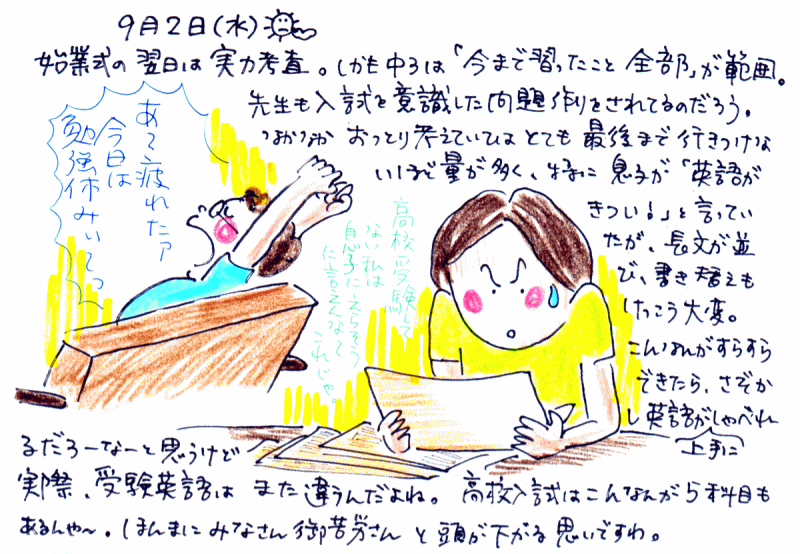 9月2日(水)
始業式の翌日は実力考査。しかも中3は「今まで習ったこと全部」が範囲。
先生も入試を意識した問題作りをされてるのだろう。
なかなか おっとり考えていてはとても最後まで行きつけな
いほど量が多く、特に息子が「英語が
きつい!」と言ってい
たが、長文が並
び、書き替えも
けっこう大変。
こんなんがすらすら
できたら、さぞか
し英語がしゃべれ
上手に
るだろーなーと思うけど
実際、受験英語はまた違うんだよね。高校入試はこんなんが5科目も
あるんや〜。ほんまにみなさん御苦労さんと頭が下がる思いですわ。
あ〜疲れたァ
今日は
勉強休みいてっ
高校受験して
ない私は
息子にえらそう
に言えんなて
これじゃ。